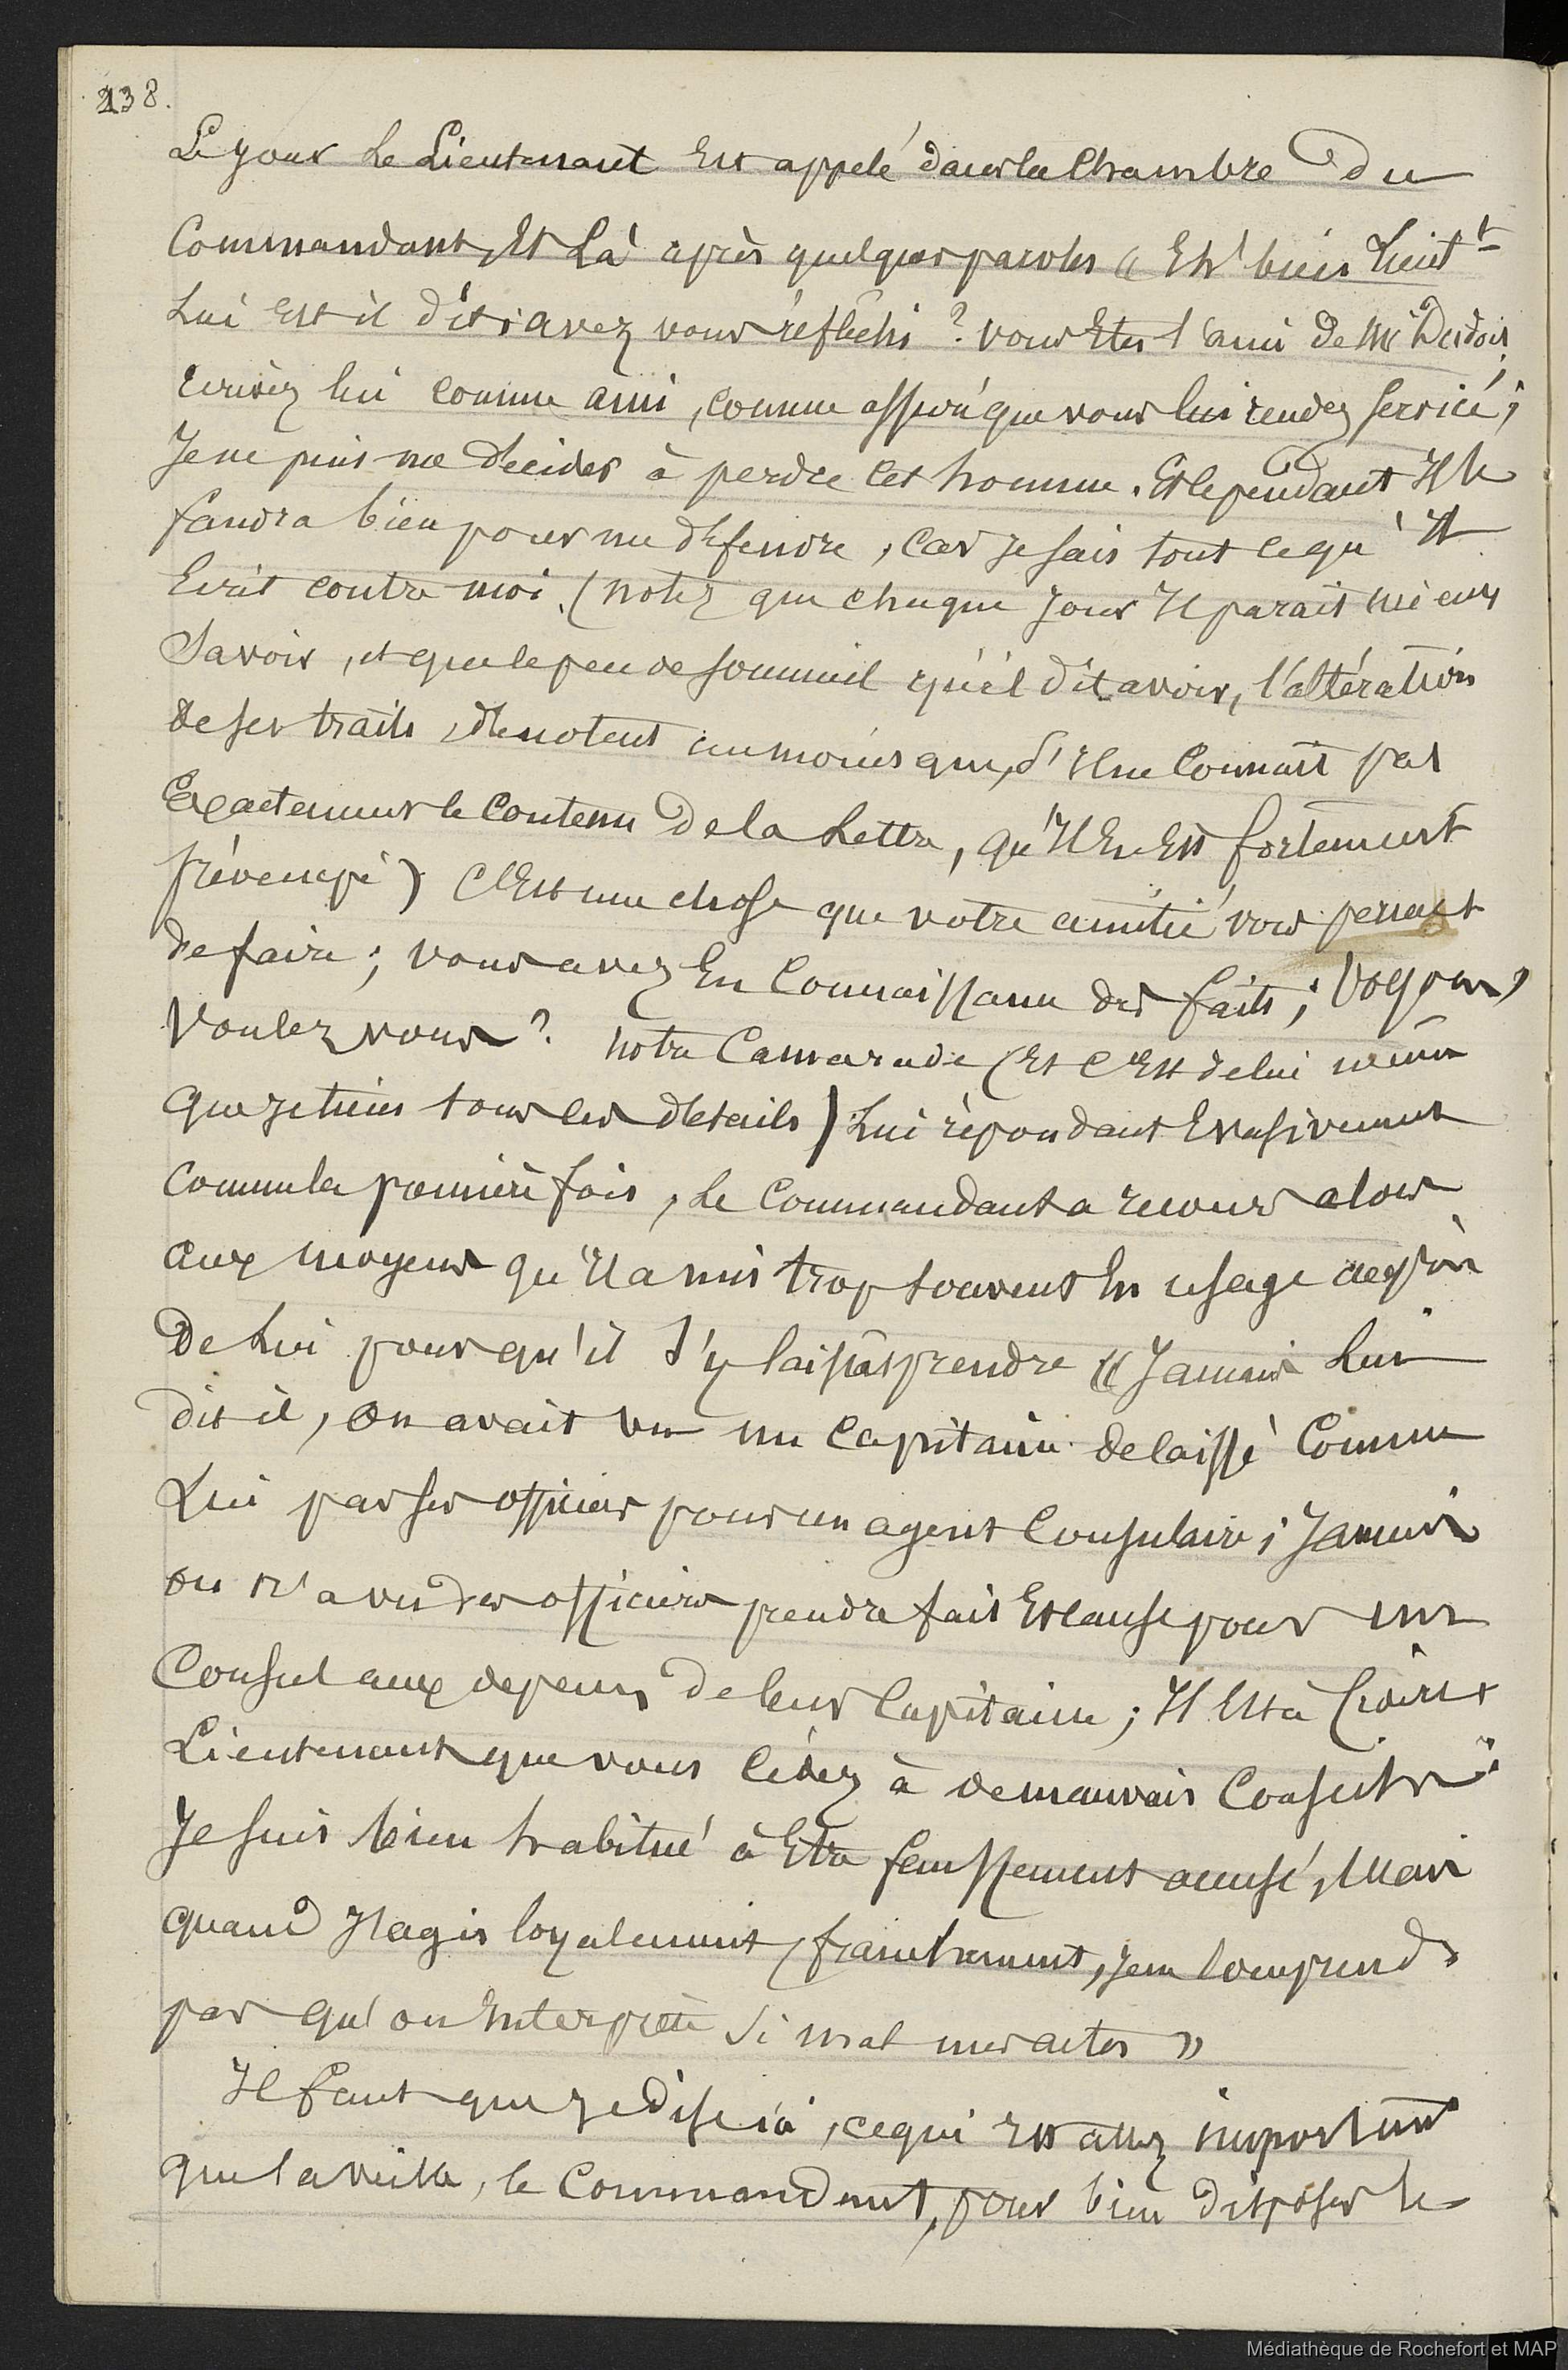 238.
Ce jour le Lieutenant Est appelé dans la Chambre du
Commandant, Et Là après quelques paroles « Eh! bien Lieutt
Lui est il dit; avez vous réfléchi ? vous Etes l'ami de Mr
Ecrivez lui comme ami, comme que vous lui rendez service;
Je ne puis me decider à perdre cet homme. Et cependant Il le
faudra bien pour me défendre, car je sais tout ce qu'Il
Ecrit contre moi. (notez que chaque jour Il parait mieux
Savoir, et que le peu de sommeil qu'il dit avoir, l'altération
de ses traits, dénotent au moins que, s'Il ne Connait pas
Exactement le Contenu de la Lettre, qu'Il En Est fortement
préoccupé) C'Est une chose que votre amitié vous permet
de faire; vous avez En Connaissance des faits; Voyons,
Voulez vous? notre Camarade (Et c'Est de lui même
que je tiens tous les détails) Lui répondant Evasivement
Comme la premiere fois, Le Commandant a recours alors
aux moyens qu'Il a mis trop souvent En usage auprès
De Lui pour qu'il s'y laissât prendre « Jamais Lui
dit il, on avait vu un Capitaine delaissé Comme
Lui par ses officiers pour un agent Consulaire; Jamais
on n'a vu des officiers prendre fait Et cause pour un
Consul aux depens de leur Capitaine; Il Est à Croire
Lieutenant que vous cédez à de mauvais Conseils;
Je suis bien habitué à Etre faussement accusé, Mais
quand J'agis loyalement, franchement, je ne comprends
pas qu'on Interprète si mal mes actes »
Il faut que je dise ici, ce qui Est assez important
que la veille, le Commandant, pour bien disposer le
Médiathèque de Rochefort et MAP